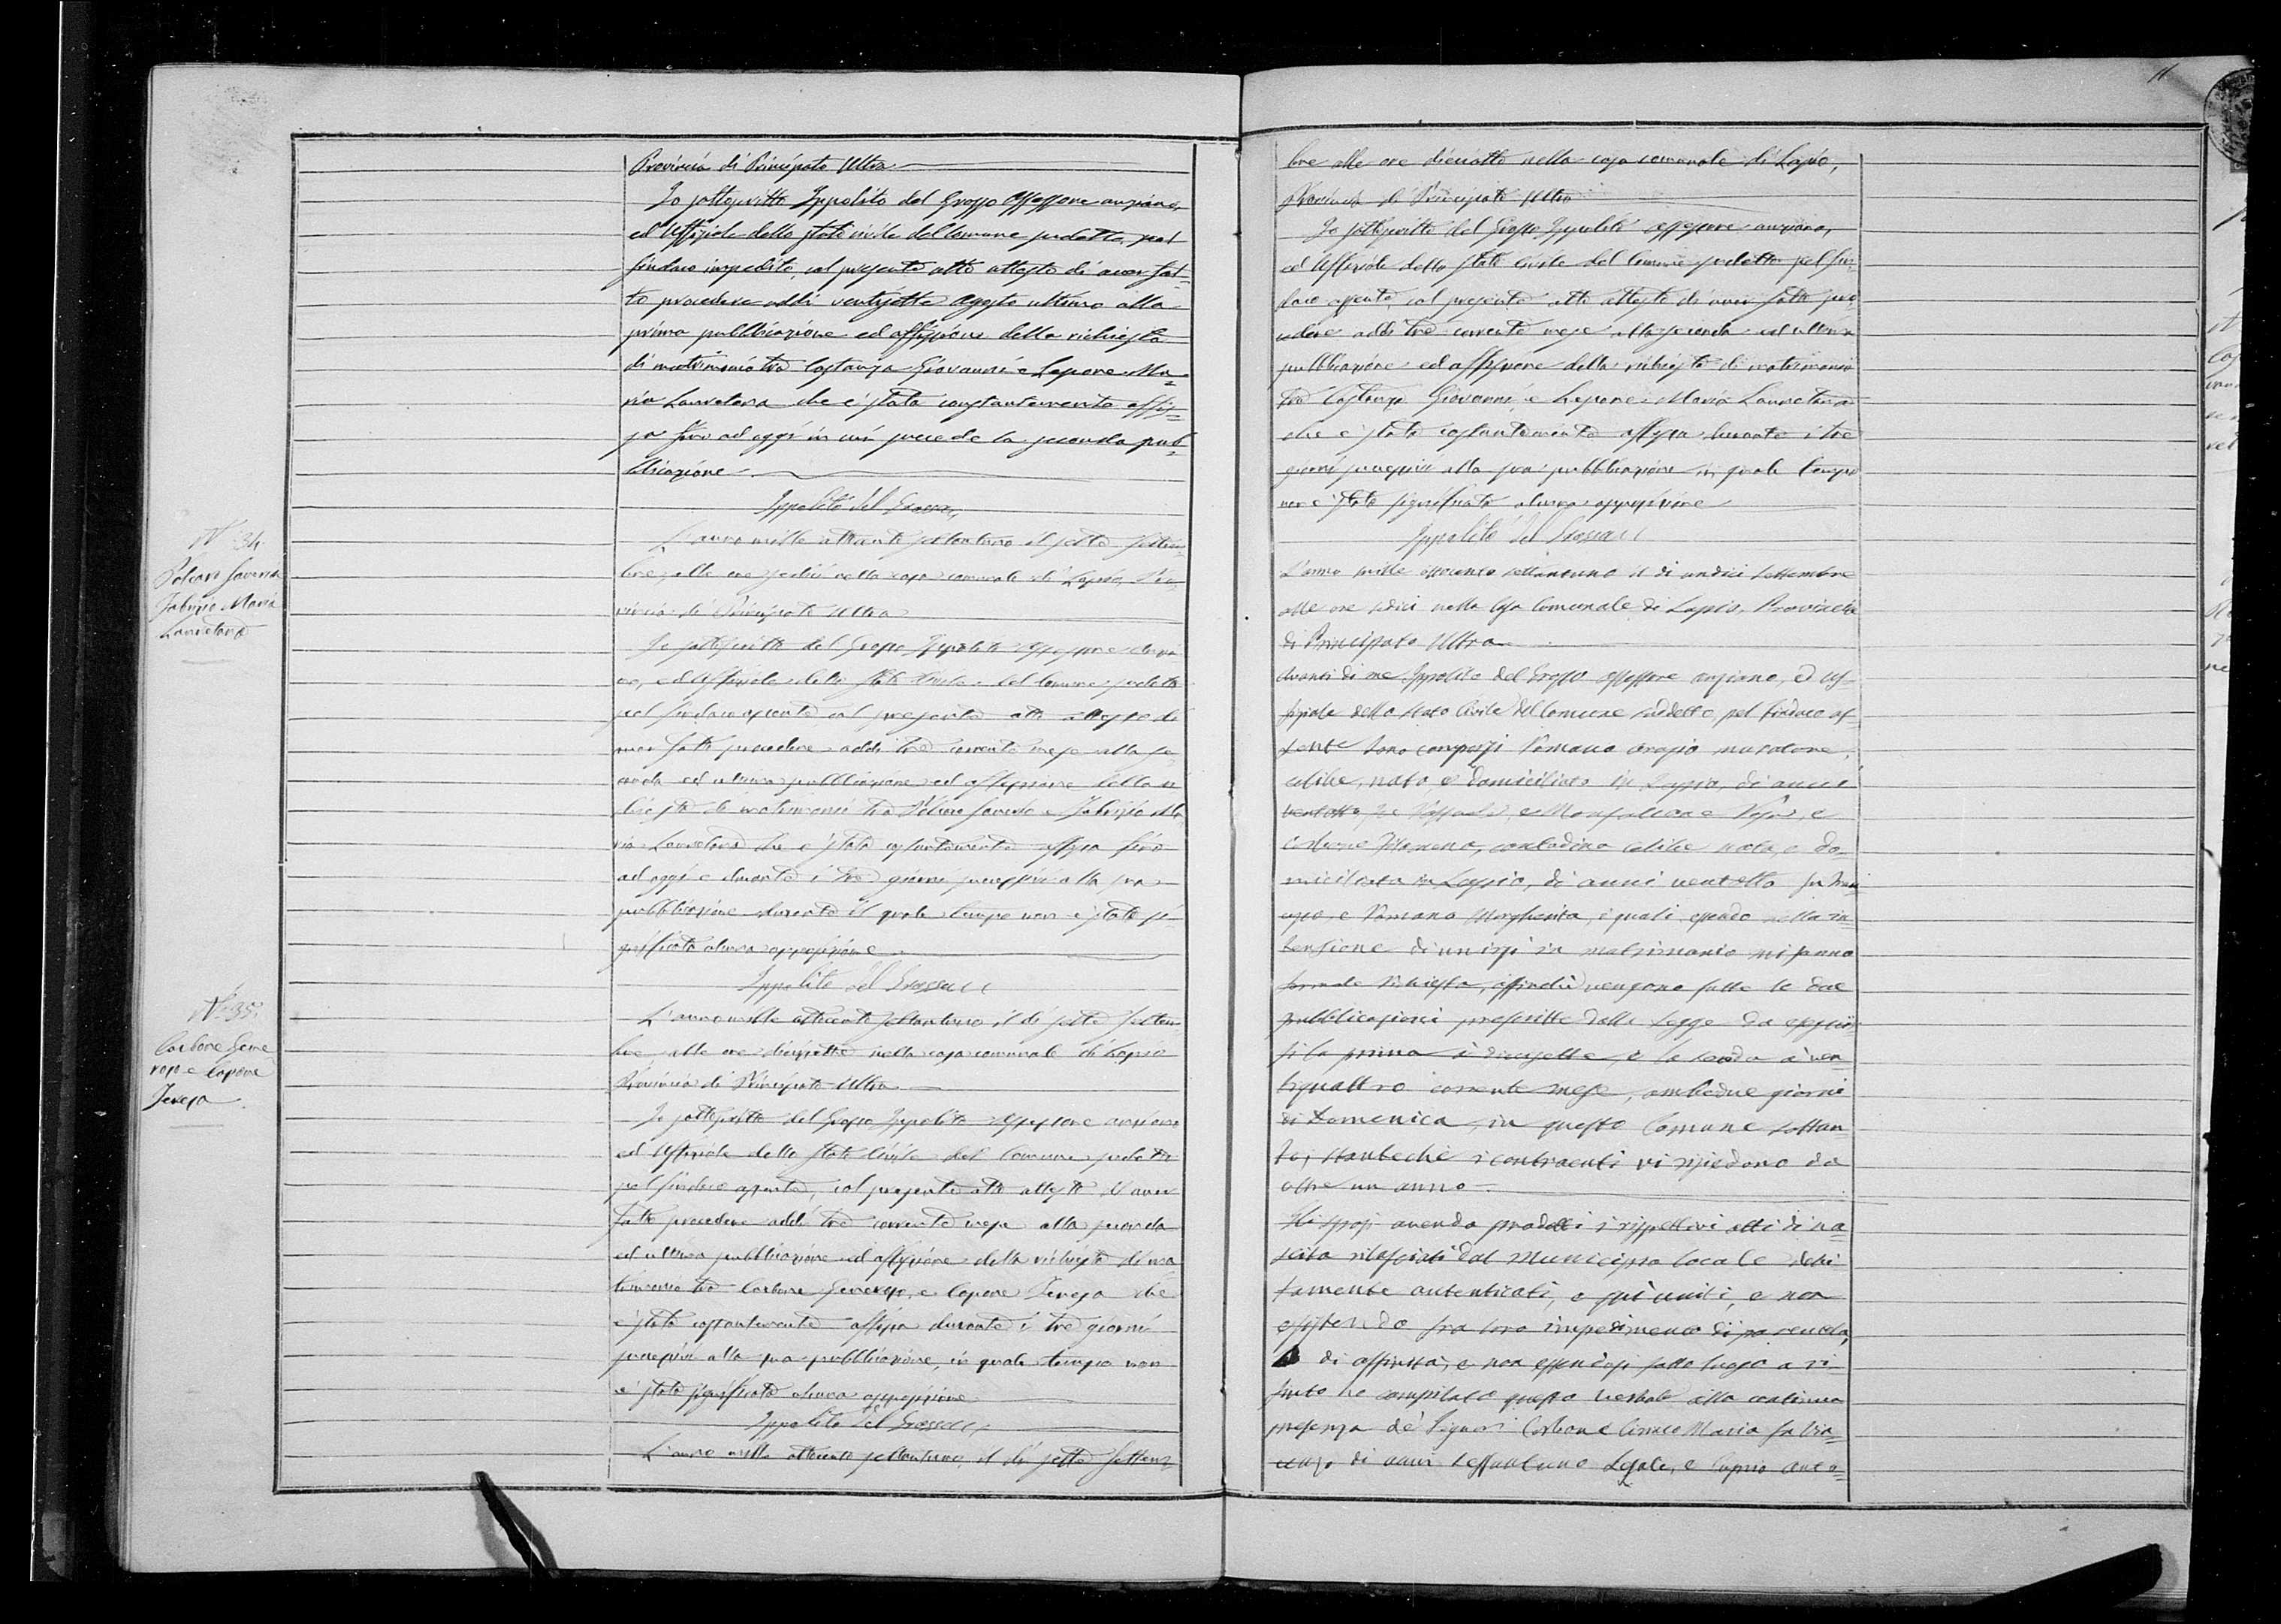 Provincia di Principato Ultra
Io sottoscritto Ippolito del Grosso Assessore anziano,
ed Uffiziale dello Stato civile del Comune sudetto, pel
Sindaco impedito, col presente atto attesto di aver fat-
to procedere addì ventisette Agosto ultimo alla
prima pubblicazione ed affissione della richiesta
di matrimonio tra Costanza Giovanni e Lepore Ma-
ria Lauretana che è stata constantemente affis-
sa fino ad oggi in cui procede la seconda pub-
blicazione
Ippolito del Grosso
N.° 34.
Polcaro Saverio
Fabrizio Maria
Lauretana
L'anno mille ottocento settantuno il sette Settem-
bre, alle ore sedici nella casa comunale di Lapio, Pro-
vincia di Principato Ultra
Io sottoscritto del Grosso Ippolito Assessore anzia-
no, ed Uffiziale dello Stato Civile del Comune sudetto
pel Sindaco assente col presente atto attesto di
aver fatto procedere addì tre corrente mese alla se-
conda ed ultima pubblicazione ed affissione della ri-
chiesta di matrimonio tra Polcaro Saverio e Fabrizio Ma-
ria Lauretana che è stata costantemente affissa fino
ad oggi e durante i tre giorni successivi alla sua
pubblicazione durante il quale tempo non è stata si-
gnificata alcuna opposizione
Ippolito del Grosso
N.° 35.
Carbone Gene-
roso e Capone
Teresa
L'anno mille ottocento settantuno il dì sette Settem-
bre, alle ore diciassette nella casa comunale di Lapio
Provincia di Principato Ultra
Io sottoscritto del Grosso Ippolito Assessore anziano
ed Uffiziale dello Stato Civile del Comune sudetto
pel Sindaco assente, col presente atto attesto d'aver
fatto procedere addì tre corrente mese alla seconda
ed ultima pubblicazione ed affissione della richiesta di ma-
trimonio tra Carbone Generoso, e Capone Teresa che
è stata costantemente affissa durante i tre giorni
successivi alla sua pubblicazione, in quale tempo non
è stata significata alcuna opposizione
Ippolito del Grosso
L'anno mille ottocento settantuno, il dì sette Settem-
11
bre alle ore dieciotto nella casa comunale di Lapio,
Provincia di Principato Ultra
Io sottoscritto del Grosso Ippolito assessore anziano,
ed Uffiziale dello Stato Civile del Comune sudetto pel Sin-
daco assente, col presente atto attesto di aver fatto pro-
cedere addì tre corrente mese alla seconda ed ultima
pubblicazione ed affissione della richiesta di matrimonio
tra Costanza Giovanni e Lepore Maria Lauretana
che è stata costantemente affissa durante i tre
giorni successivi alla sua pubblicazione in quale tempo
non è stata significata alcuna opposizione
Ippolito del Grosso
L'anno mille ottocento settantuno il dì undici Settembre
alle ore sedici nella Casa Comunale di Lapio, Provincia
di Principato Ultra
Avanti di me Ippolito del Grosso assessore anziano, ed Uf-
fiziale dello Stato Civile del Comune suddetto pel Sindaco as-
sente sono comparsi Romano Orazio muratore,
celibe, nato, e domiciliato in Lapio, di anni
ventotto, fu Raffaele, e Monfalcone Rosa, e
Carbone Filomena, contadina celibe nata, e do-
miciliata in Lapio, di anni ventotto
e Romano Margherita, i quali essendo nella in-
tenzione di unirsi in matrimonio mi fanno
formale richiesta, affinchè vengano fatte le due
pubblicazioni prescritte dalla Legge da eseguir-
si la prima a diciasette, e la seconda a ven-
tiquattro corrente mese, ambedue giorni
di Domenica, in questo Comune soltan-
to, stantechè i contraenti vi risiedono da
oltre un anno.
Gli sposi avendo prodotti i rispettivi atti di na-
scita rilasciati dal Municipio locale debi-
tamente autenticati, e qui uniti, e non
esistendo fra loro impedimento di parentela,
di affinità, e non essendosi fatto luogo a ri-
fiuto ho compilato questo verbale alla continua
presenza de' Signori Carbone Ciriaco Maria fu Vin-
cenzo di anni sessantuno Legale, e Caprio Anto-